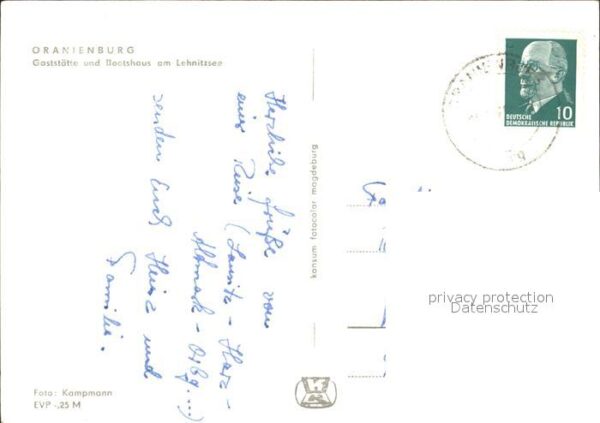 ORANIENBURG
Gaststätte und Bootshaus am Lehnitzsee
Herzliche Grüße von
einer Reise (Lausitz - Harz -
Altmark - Orbg....)
senden Euch Heinz und
Familie.
konsum fotocolor magdeburg
DEUTSCHE
DEMOKRATISCHE REPUBLIK
10
privacy protection
Datenschutz
Foto: Kampmann
EVP -,25 M